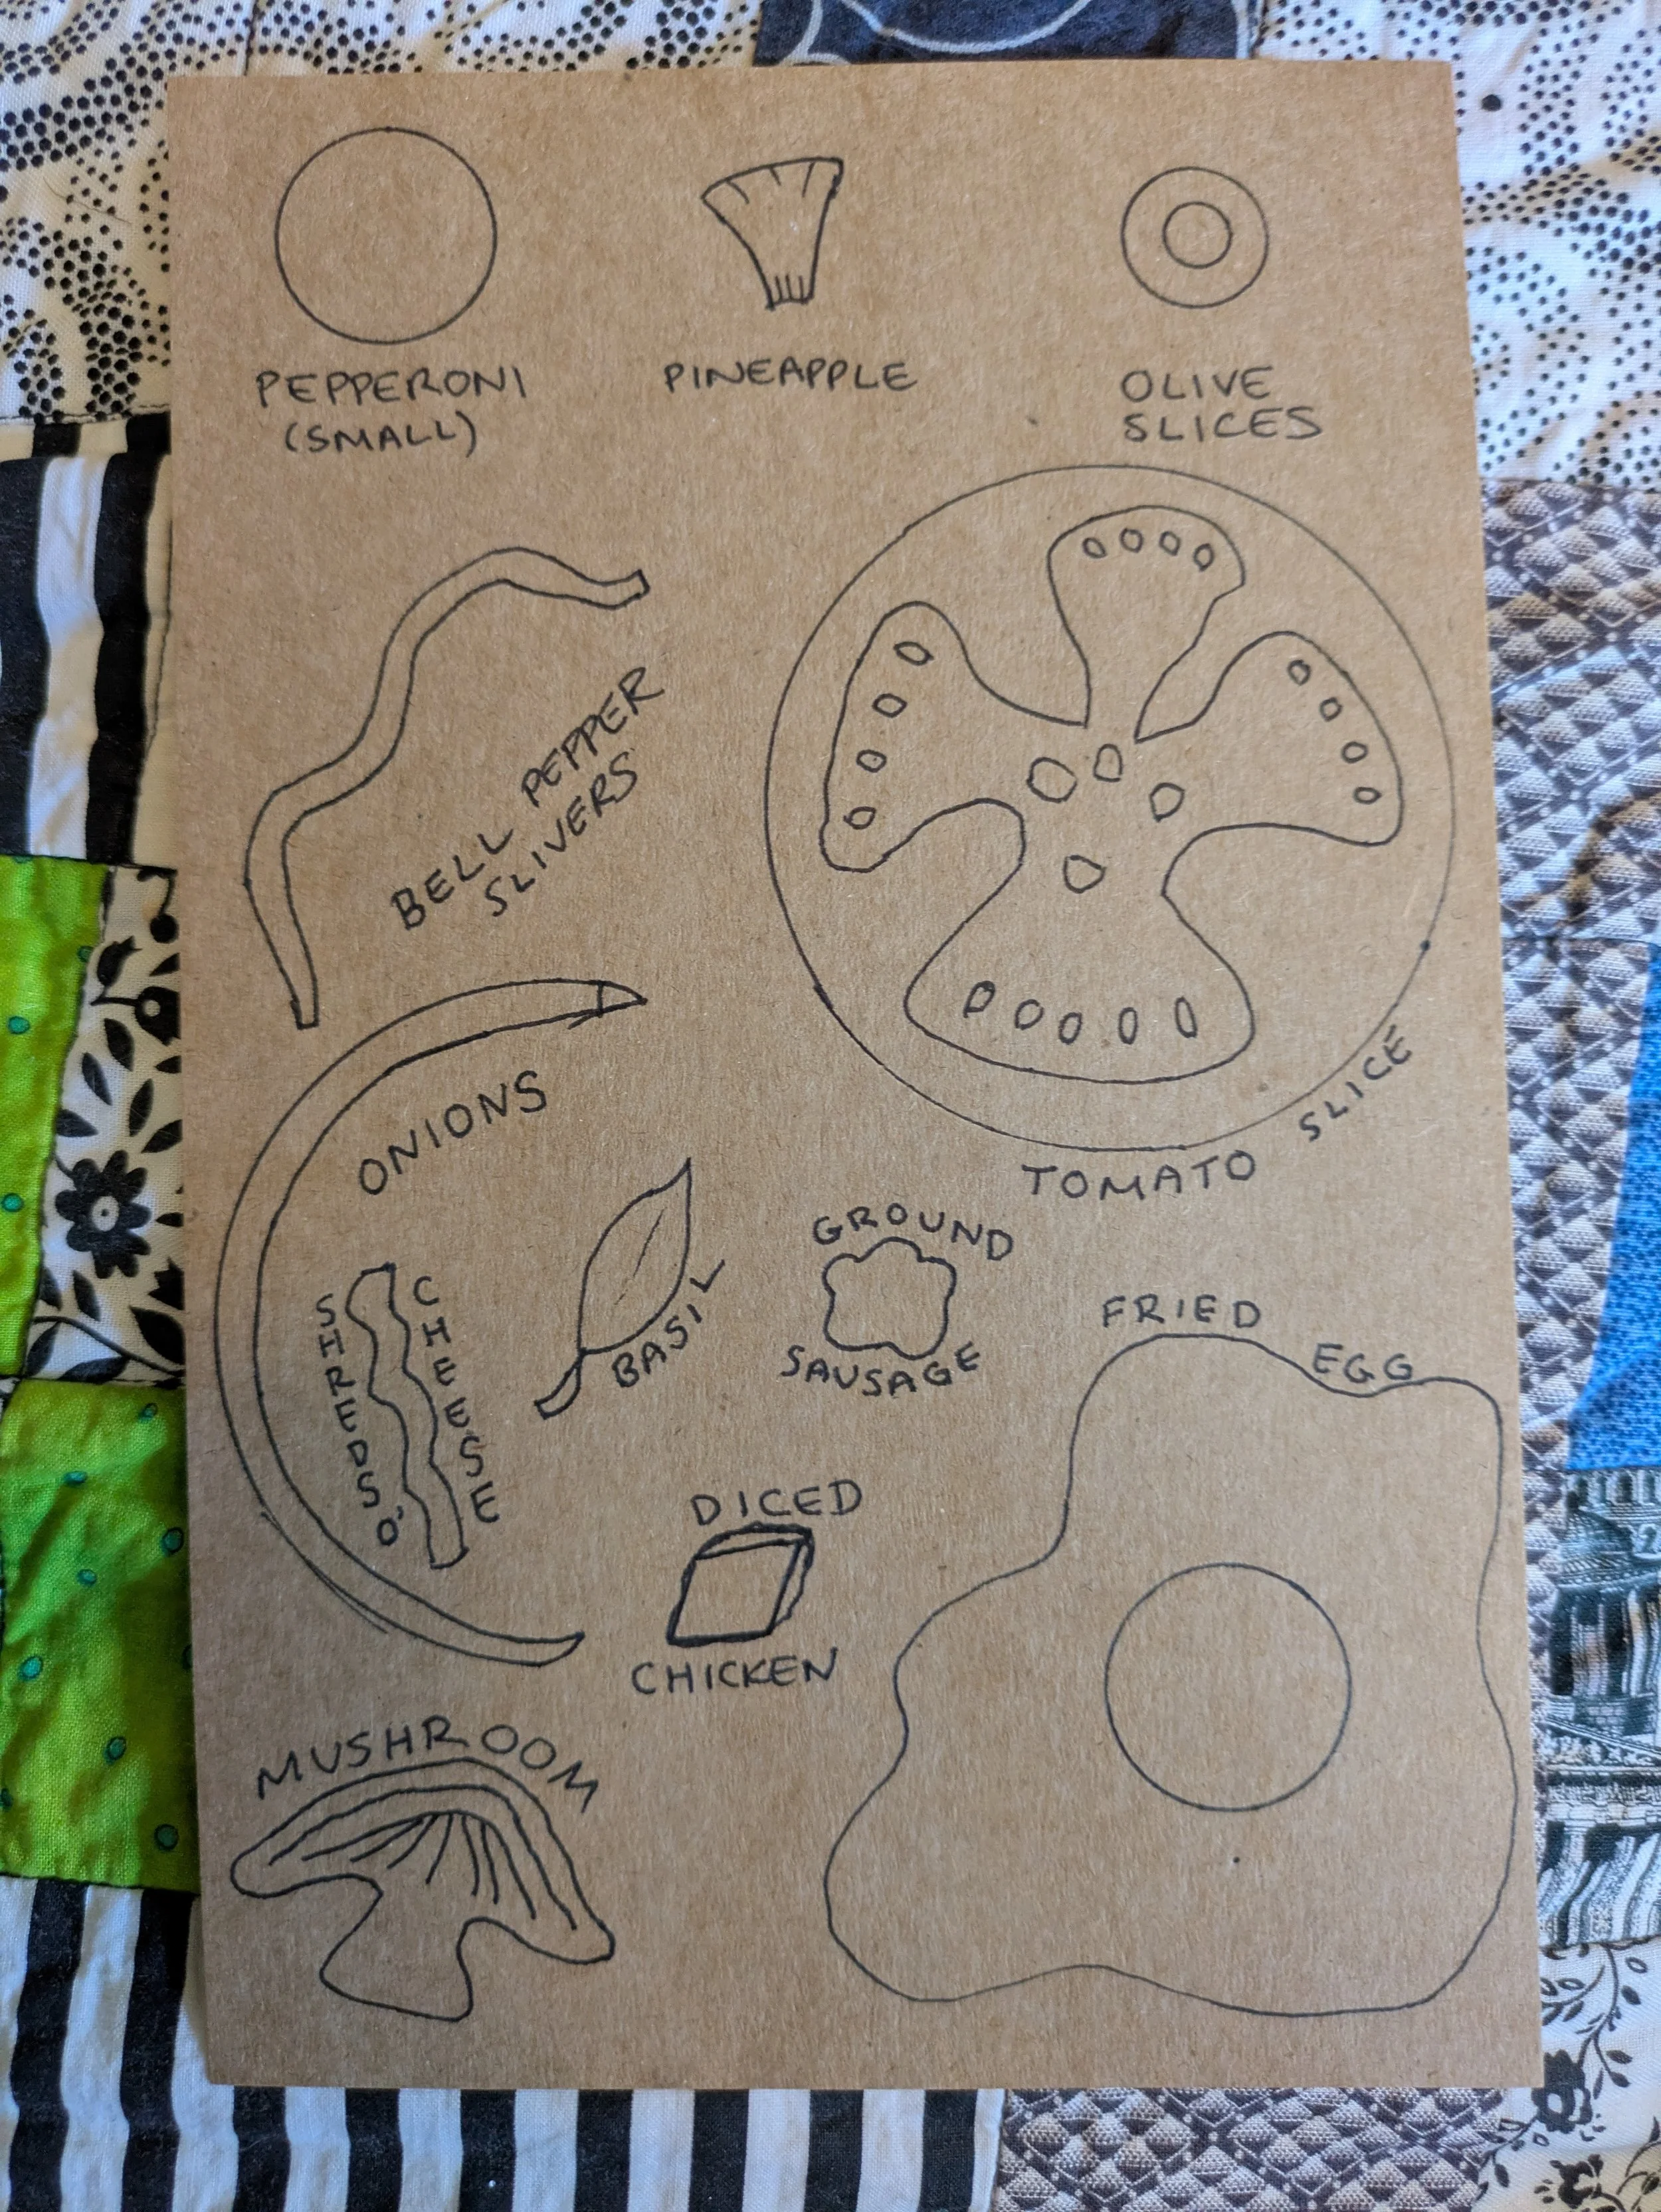 PEPPERONI
(SMALL)
PINEAPPLE
OLIVE
SLICES
BELL PEPPER
SLIVERS
TOMATO SLICE
ONIONS
SHREDS O'
CHEESE
BASIL
GROUND
SAUSAGE
FRIED EGG
DICED
CHICKEN
MUSHROOM